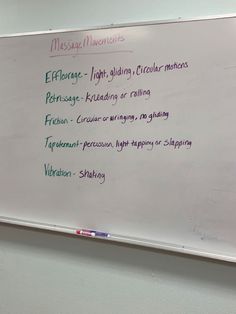 Massage Movements
Effleurage - light, gliding, Circular motions
Petrissage - Kneading or rolling
Friction - Circular or wringing, no gliding
Tapotement - percussion, light tapping or slapping
Vibration - shaking